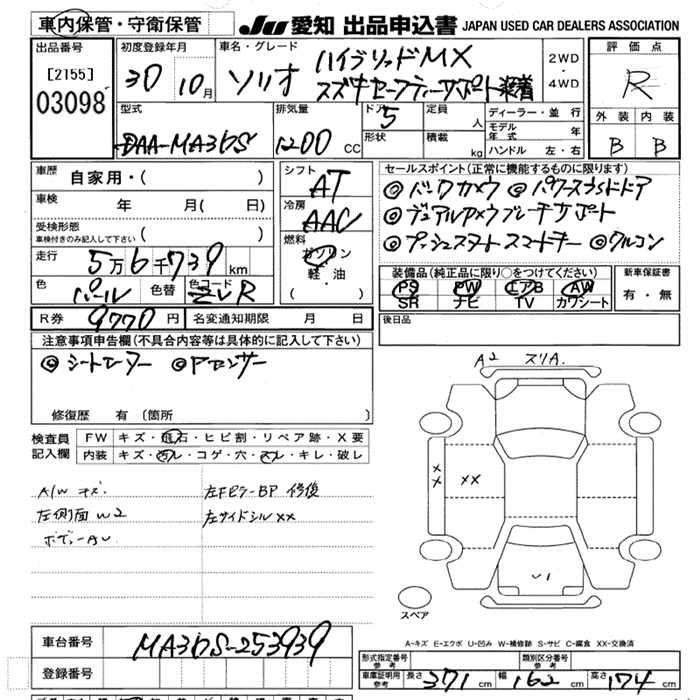 車内保管・守衛保管
JU 愛知 出品申込書 JAPAN USED CAR DEALERS ASSOCIATION
出品番号
[2155]
03098
初度登録年月
30 10月
車名・グレード
ソリオ ハイブリッドMX
スズキセーフティーサポート装着
2WD
・
4WD
評価点
R
外装 内装
B B
型式
DAA-MA36S
排気量
1200 CC
ドア 5
形状
定員 人
積載 kg
ディーラー・並行
モデル年式 年
ハンドル 左・右
車歴 自家用・( )
車検 年 月( 日)
受検形態
車検付きのみ記入して下さい ( )
走行 5万6千739km
色 パール 色替 色コード ZVR
R券 9770円 名変通知期限 月 日
シフト
AT
冷房
AAC
燃料
ガソリン
軽油
( )
セールスポイント(正常に機能するものに限ります)
◎バックカメラ ◎パワースライドドア
◎デュアルカメラブレーキサポート
◎プッシュスタート スマートキー ◎クルコン
装備品(純正品に限り○をつけてください)
PS PW エアB AW
SR ナビ TV カワシート
新車保証書
有・無
後日品
注意事項申告欄(不具合内容等は具体的に記入して下さい)
◎シートヒーター ◎Pセンサー
修復歴 有 〔箇所 〕
検査員
記入欄
FW キズ・飛石・ヒビ割・リペア跡・X要
内装 キズ・汚レ・コゲ・穴・スレ・キレ・破レ
A/W キズ
左側面 W2
ボディーAU
左Fピラー-BP 修復
左サイドシルXX
A2 スリA.
XX
XX
U1
スペア
A-キズ E-エクボ U-凹み W-補修跡 S-サビ C-腐食 XX-交換済
車台番号 MA36S-253939
登録番号
形式指定番号
参考
類別区分番号
参考
車庫証明用
参考
長さ 371cm 幅 162cm 高さ 174cm